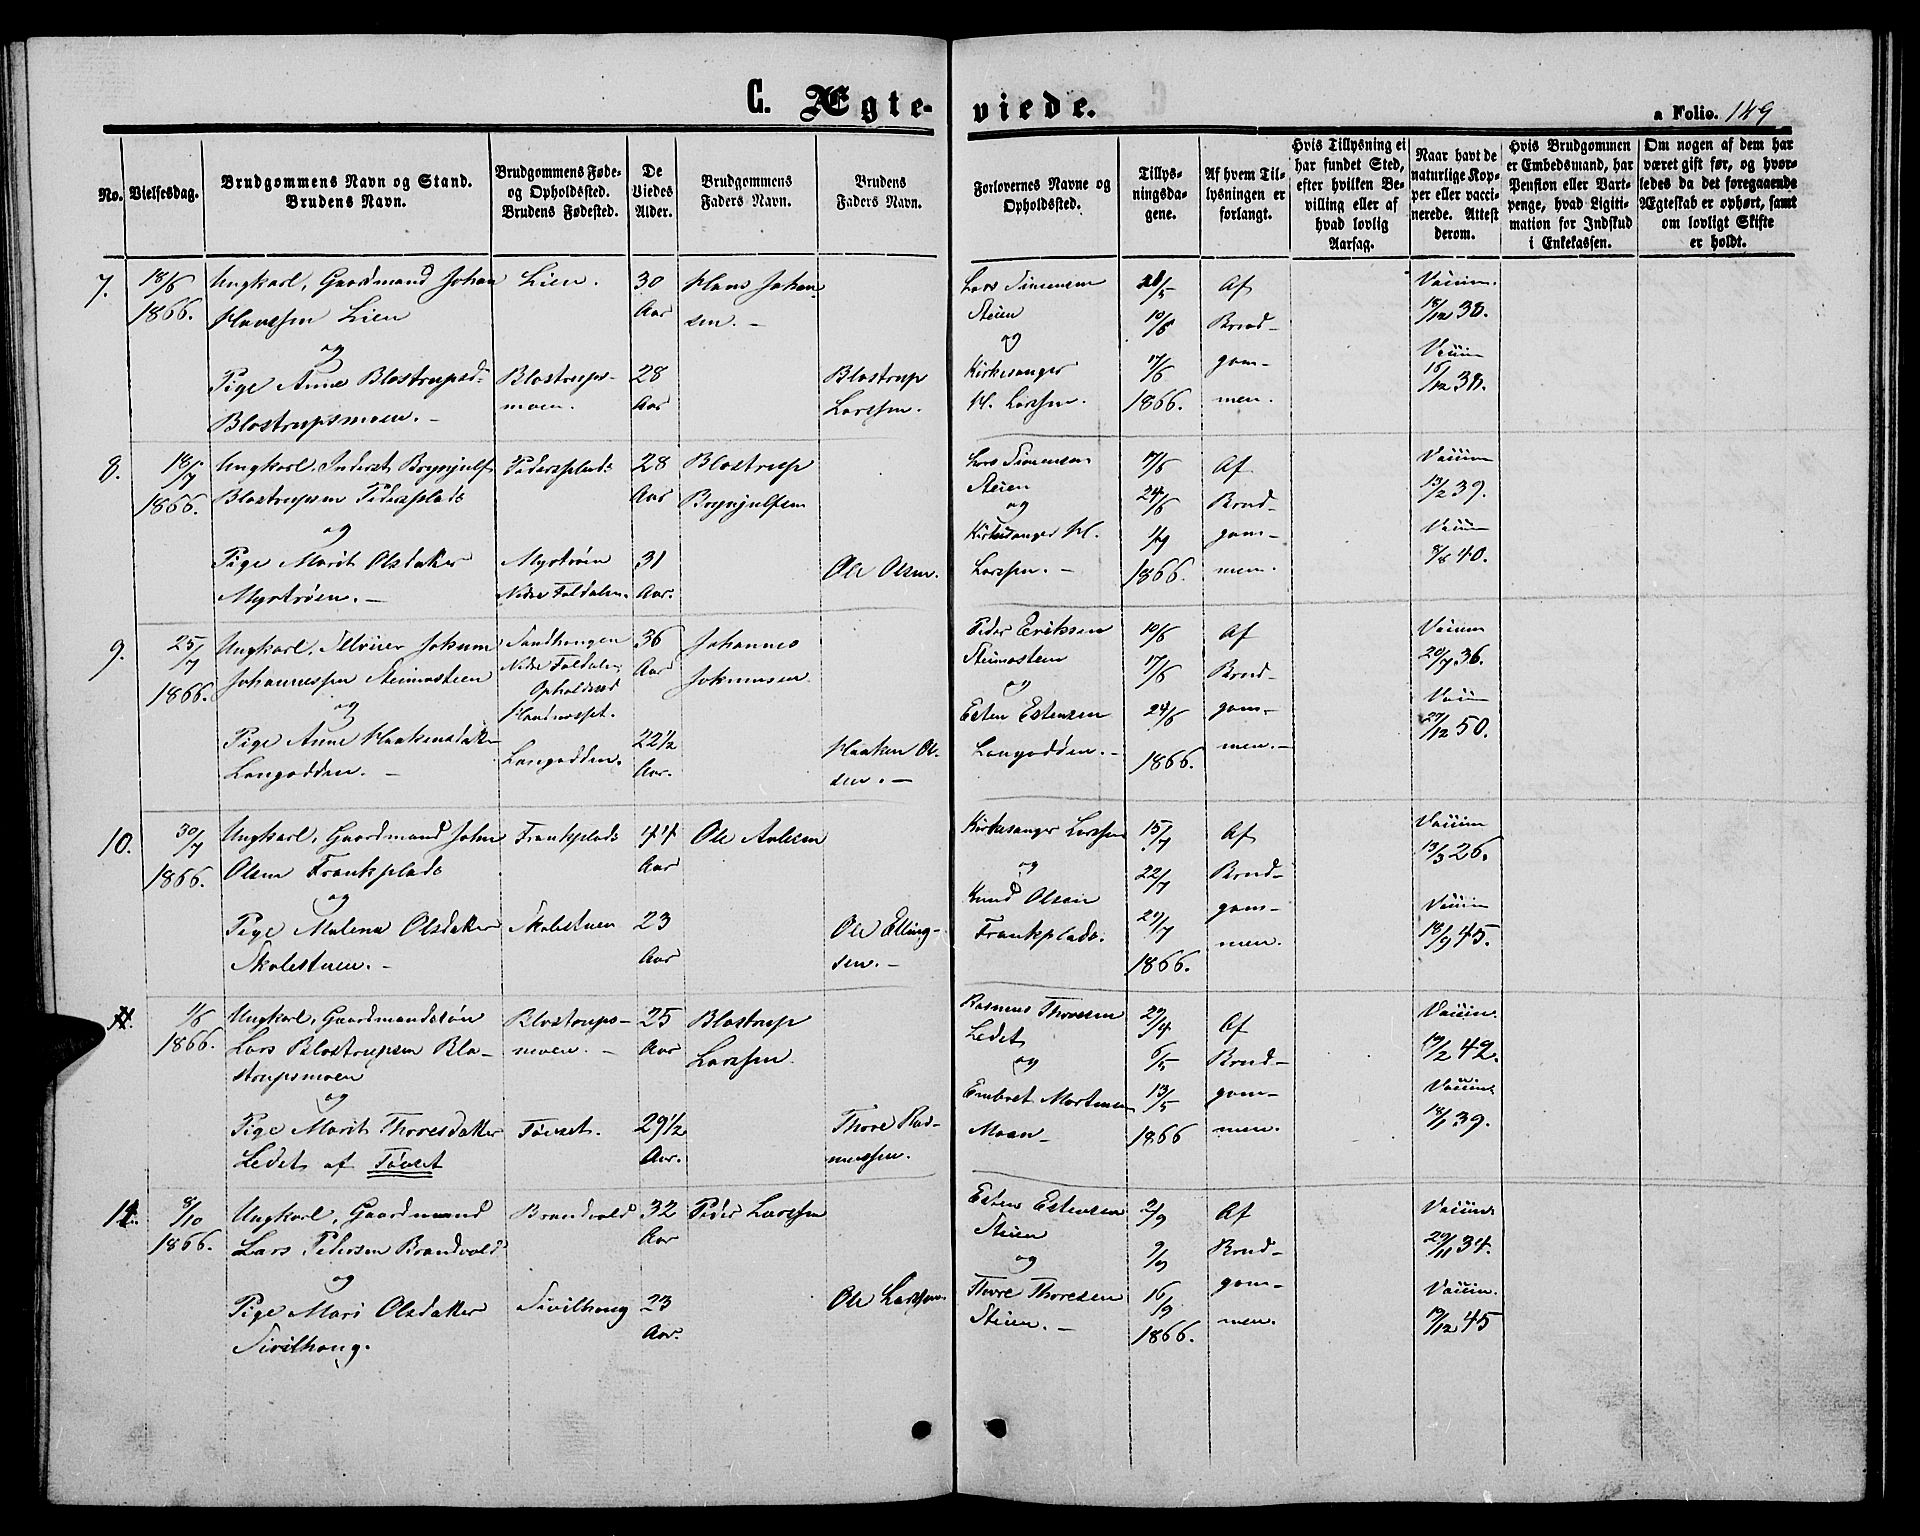 C. Ægte-
viede.
a Folio. 149
No.
Vielsesdag.
Brudgommens Navn og Stand.
Brudens Navn.
Brudgommens Føde-
og Opholdssted.
Brudens Fødested.
De
Viedes
Alder.
Brudgommens
Faders Navn.
Brudens
Faders Navn.
Forlovernes Navne og
Opholdssted.
Tillys-
ningsda-
gene.
Af hvem Til-
lysningen er
forlangt.
Hvis Tillysning ei
har fundet Sted,
efter hvilken Be-
villing eller af
hvad lovlig
Aarsag.
Naar havt de
naturlige Kop-
per eller vacci-
nerede. Attest
derom.
Hvis Brudgommen
er Embedsmand, har
Pension eller Vart-
penge, hvad Ligiti-
mation for Indskud
i Enkekassen.
Om nogen af dem har
været gift før, og hvor-
ledes da det foregaaende
Ægteskab er ophørt, samt
om lovligt Skifte
er holdt.
7.
18/6
1866.
Ungkarl, Gaardmand Johan
Hansen Lien
og
Pige Anne Blostrupsd.
Blostrupsmoen. -
Lien.
Blostrups-
moen.
30
Aar
28
Aar
Hans Johan
sen. -
Blostrup
Larssen.
Lars Simensen
Steien
og
Kirkesanger
H. Larssen.
21/5
10/6
17/6
1866.
Af
Brud-
gom-
men.
Vaccin.
18/12 38.
Vaccin
16/12 38.
8.
18/7
1866.
Ungkarl, Inderst Brynjulf
Blostrupsen Pedersplads
og
Pige Marit Olsdatter
Myrtrøen. -
Pedersplads
Myrtrøen
Nedre Foldalen.
28
Aar
31
Aar.
Blostrup
Brynjulfsen
Ole Olsen.
Lars Simensen
Steien
og
Kirkesanger H.
Larssen. -
17/6
24/6
1/7
1866.
Af
Brud-
gom-
men.
Vaccin
13/2 39.
Vaccin
8/8 40.
9.
25/7
1866.
Ungkarl, Johannessen Steimosteen
og
Pige Anne Haakensdatter
Langodden. -
Sandhougen
Nedre Foldalen
Opholdssted
Langodden.
36
Aar
22 1/2
Aar.
Johannes
Haaken Ol-
sen. -
Peder Eriksen
Steimosteen
og
Esten Estensen
Langodden. -
10/6
17/6
24/6
1866.
Af
Brud-
gom-
men. -
Vaccin
20/7 36.
Vaccin
27/12 50.
10.
30/7
1866.
Ungkarl, Gaardmand John
Olsen Frankplads
og
Pige Malena Olsdatter
Skolestuen. -
Frankplads
Skolestuen
44
Aar
23
Aar
Ole
Ole Elling-
sen. -
Kirkesanger Larssen
og
Knud Olsen
Frankplads.
15/7
22/7
29/7
1866.
Af
Brud-
gom-
men.
Vaccin
13/3 26.
Vaccin
18/9 45.
11.
1/6
1866.
Ungkarl, Gaardmandssøn
Lars Blostrupsen Blo-
strupsmoen
og
Pige Marit Thoresdatter
Ledet af Tøvset
Blostrups-
moen. -
Tøvset.
25
Aar
29 1/2
Aar.
Blostrup
Larssen.
Thore Ras-
mussen.
Rasmus Thoresen
Ledet
og
Embret Mortensen
Moan-
29/4
6/5
13/5
1866
Af
Brud-
gom-
men.
Vaccin.
19/2 42.
Vaccin.
18/1 39.
8/10
1866.
Ungkarl, Gaardmand
Lars Pedersen Brandvold
og
Pige Mari Olsdatter
Sivilhoug.
Brandvold
Sivilhoug
32
Aar
23
Aar.
Peder Larssen
Ole Larssen
Esten Estensen
Steien
og
Thore Thoresen
Steien. -
2/9
9/9
16/9
1866.
Af
Brud-
gom-
men.
Vaccin.
29/11 34.
Vaccin.
19/12 45